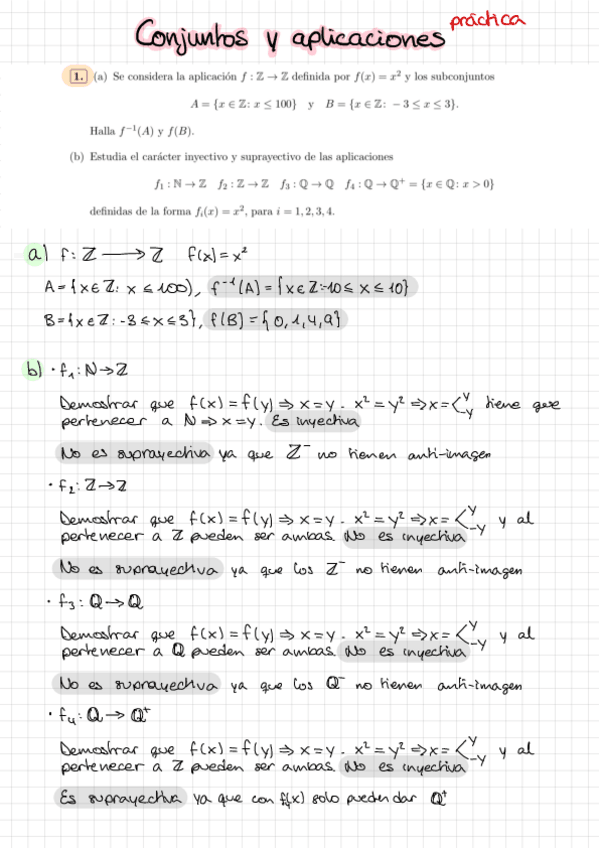 Conjuntos y aplicaciones práctica
1. (a) Se considera la aplicación f : ℤ → ℤ definida por f(x) = x² y los subconjuntos
A = {x ∈ ℤ: x ≤ 100} y B = {x ∈ ℤ: −3 ≤ x ≤ 3}.
Halla f⁻¹(A) y f(B).
(b) Estudia el carácter inyectivo y suprayectivo de las aplicaciones
f₁ : ℕ → ℤ f₂ : ℤ → ℤ f₃ : ℚ → ℚ f₄ : ℚ → ℚ⁺ = {x ∈ ℚ: x > 0}
definidas de la forma fᵢ(x) = x², para i = 1, 2, 3, 4.
a) f: ℤ → ℤ f(x) = x²
A = {x ∈ ℤ: x ≤ 100}, f⁻¹(A) = {x ∈ ℤ: -10 ≤ x ≤ 10}
B = {x ∈ ℤ: -3 ≤ x ≤ 3}, f(B) = {0, 1, 4, 9}
b) · f₁: ℕ → ℤ
Demostrar que f(x) = f(y) ⇒ x = y. x² = y² ⇒ x = < y -y tiene que
pertenecer a ℕ ⇒ x = y. Es inyectiva
No es suprayectiva ya que ℤ⁻ no tienen anti-imagen
· f₂: ℤ → ℤ
Demostrar que f(x) = f(y) ⇒ x = y. x² = y² ⇒ x = < y -y y al
pertenecer a ℤ pueden ser ambas. No es inyectiva
No es suprayectiva ya que los ℤ⁻ no tienen anti-imagen
· f₃: ℚ → ℚ
Demostrar que f(x) = f(y) ⇒ x = y. x² = y² ⇒ x = < y -y y al
pertenecer a ℚ pueden ser ambas. No es inyectiva
No es suprayectiva ya que los ℚ⁻ no tienen anti-imagen
· f₄: ℚ → ℚ⁺
Demostrar que f(x) = f(y) ⇒ x = y. x² = y² ⇒ x = < y -y y al
pertenecer a ℤ pueden ser ambas. No es inyectiva
Es suprayectiva ya que con f₄(x) solo pueden dar ℚ⁺